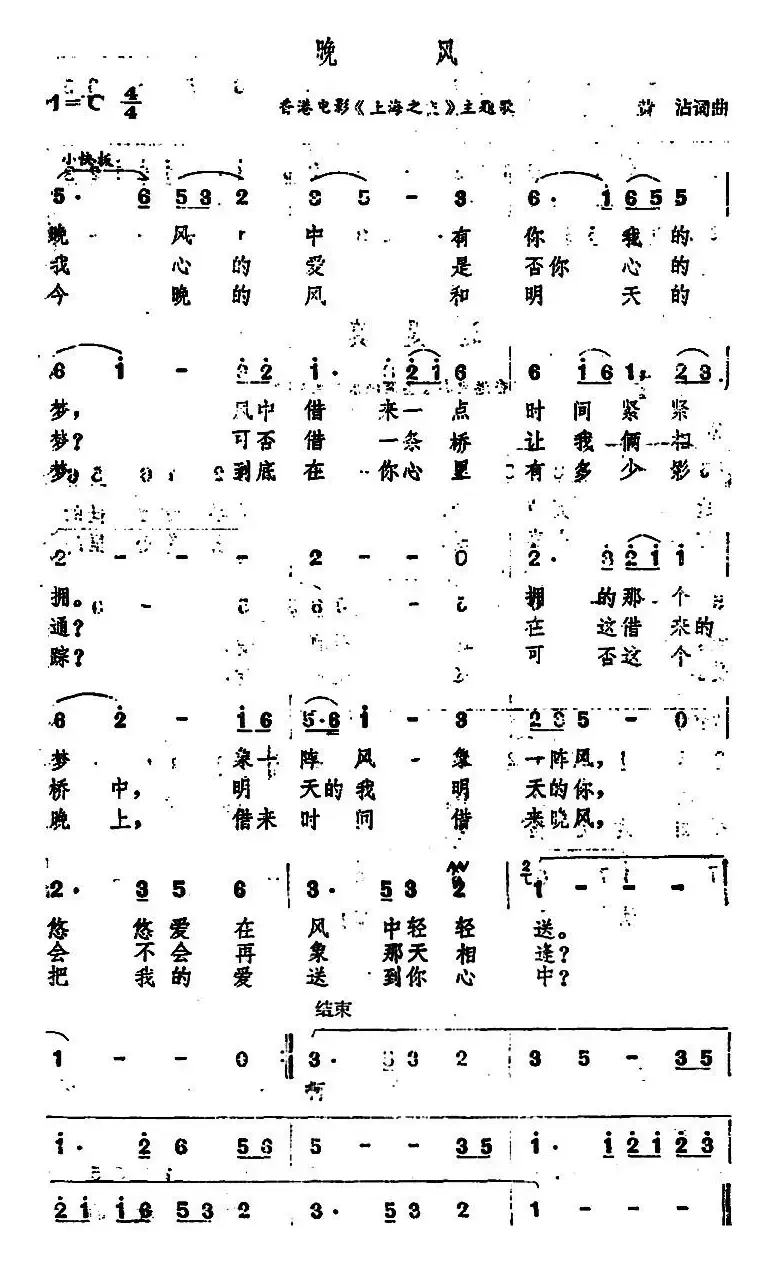 晚 风
1=C 4/4 香港电影《上海之》主题歌 沾词曲
小快板
5· 6 5 3 2 3 5 - 3 6· 1 6 5 5
晚 风 中 有 你 我 的
我 心 的 爱 是 否 你 心 的
今 晚 的 风 和 明 天 的
6 1 - 2 2 1· 3 2 1 6 6 1 6 1 2 3
梦, 风中 借 来 一 点 时 间 紧 紧
梦? 可否 借 一 条 桥 让 我 俩 相
梦 到底 在 你 心 里 有 多 少 影
2 - - - 2 - - 0 2· 3 2 1 1
拥。 拥 的 那 个
通? 在 这 借 来 的
踪? 可 否 这 个
6 2 - 1 6 5·6 1 - 3 2 3 5 - 0
梦 象一 阵 风 象 一阵风,
桥 中, 明 天的 我 明 天的你,
晚 上, 借来 时 间 借 来晚风,
2· 3 5 6 3· 5 3 2 1 - - -
悠 悠 爱 在 风 中 轻 轻 送。
会 不 会 再 象 那 天 相 逢?
把 我 的 爱 送 到 你 心 中?
结束
1 - - 0 3· 5 3 2 3 5 - 3 5
啊
1· 2 6 5 6 5 - - 3 5 1· 1 2 1 2 3
2 1 1 6 5 3 2 3· 5 3 2 1 - - -